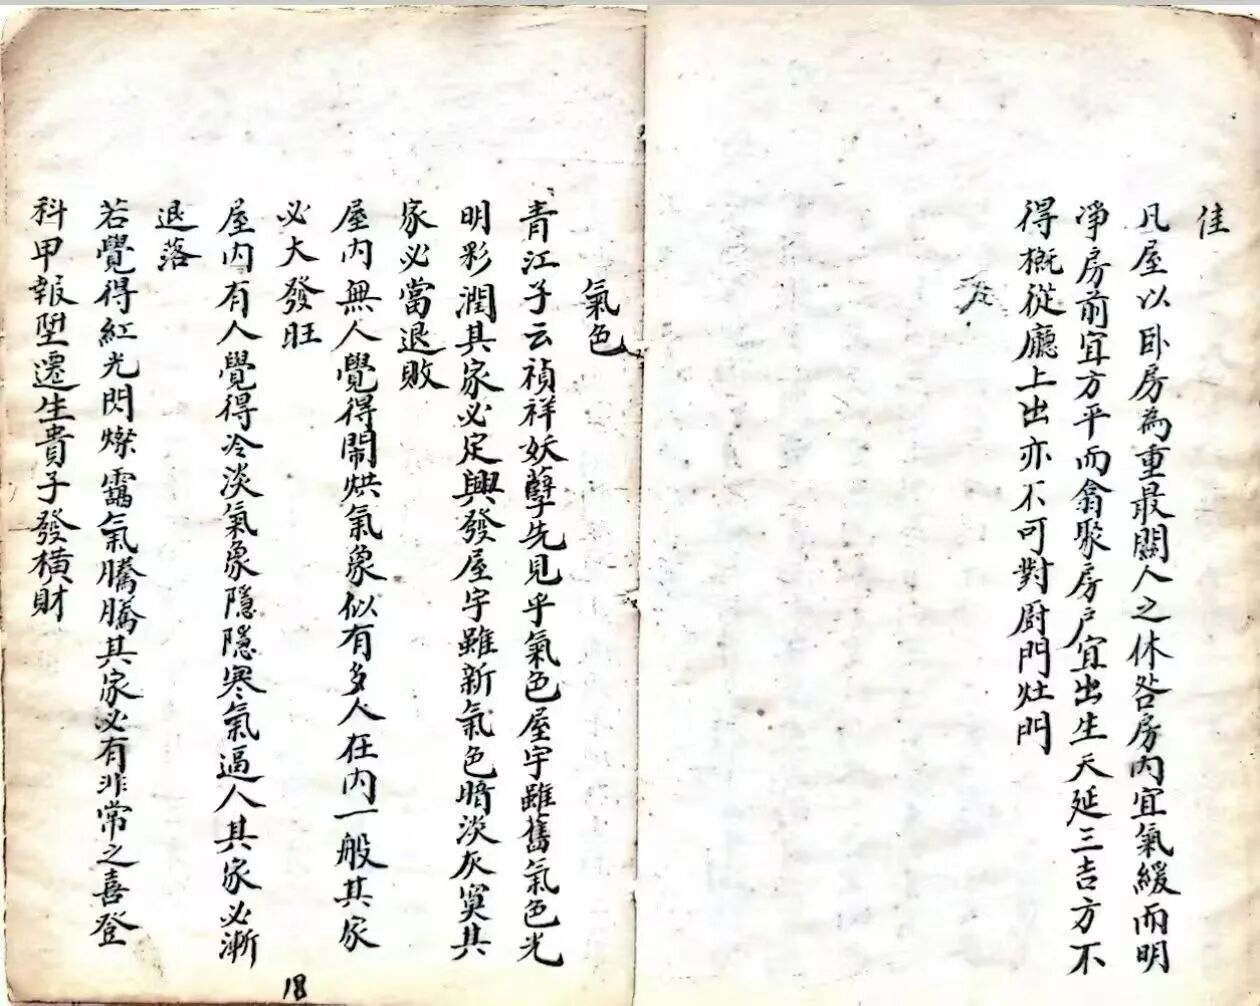 佳
凡屋以卧房為重最關人之休咎房内宜氣緩而明
凈房前宜方平而翕聚房戶宜出生天延三吉方不
得概從廳上出亦不可對厨門灶門
氣色
青江子云禎祥妖孽先見乎氣色屋宇雖舊氣色光
明彩潤其家必定興發屋宇雖新氣色暗淡灰寞其
家必當退敗
屋内無人覺得鬧烘氣象似有多人在内一般其家
必大發旺
屋内有人覺得冷淡氣象隱隱寒氣逼人其家必漸
退落
若覺得紅光閃燦靄氣騰騰其家必有非常之喜登
科甲報陞遷生貴子發橫財
18